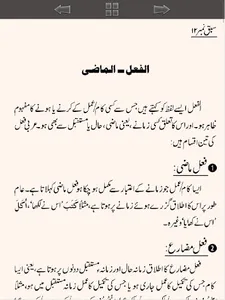 سبق نمبر ۱۲
الفعل ــ الماضی
الفعل ایسے لفظ کو کہتے ہیں جس سے کسی کام/عمل کے کرنے یا ہونے کا مفہوم
ظاہر ہو۔ اور اس کا تعلق کسی زمانے، یعنی ماضی، حال یا مستقبل سے بھی ہو۔ عربی فعل
کی تین اقسام ہیں:
❶ فعل ماضی:
ایسا کام/عمل جو زمانے کے اعتبار سے مکمل ہو چکا ہو فعل ماضی کہلاتا ہے۔ عام
طور پر اس کا اطلاق گزرے ہوئے زمانے پر ہوتا ہے، مثلاً كَتَبَ 'اس نے لکھا'، أَكَلَ
'اس نے کھایا' وغیرہ۔
❷ فعل مضارع:
فعل مضارع کا اطلاق زمانہ حال اور زمانہ مستقبل دونوں پر ہوتا ہے، یعنی ایسا
کام جس کی تکمیل کا عمل جاری ہو یا جس کی تکمیل کا عمل زمانہ مستقبل میں ہو، مثلاً